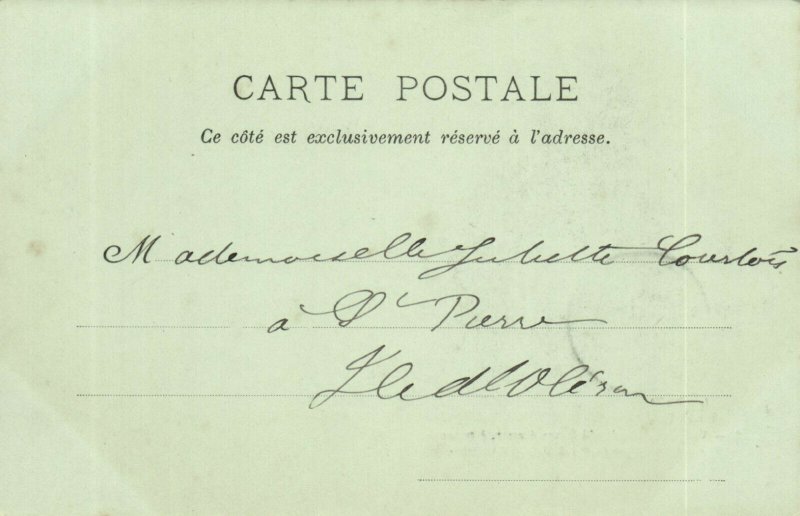 CARTE POSTALE
Ce côté est exclusivement réservé à l'adresse.
Mademoiselle Juliette Courtois
à St Pierre
Ile d'Oléron